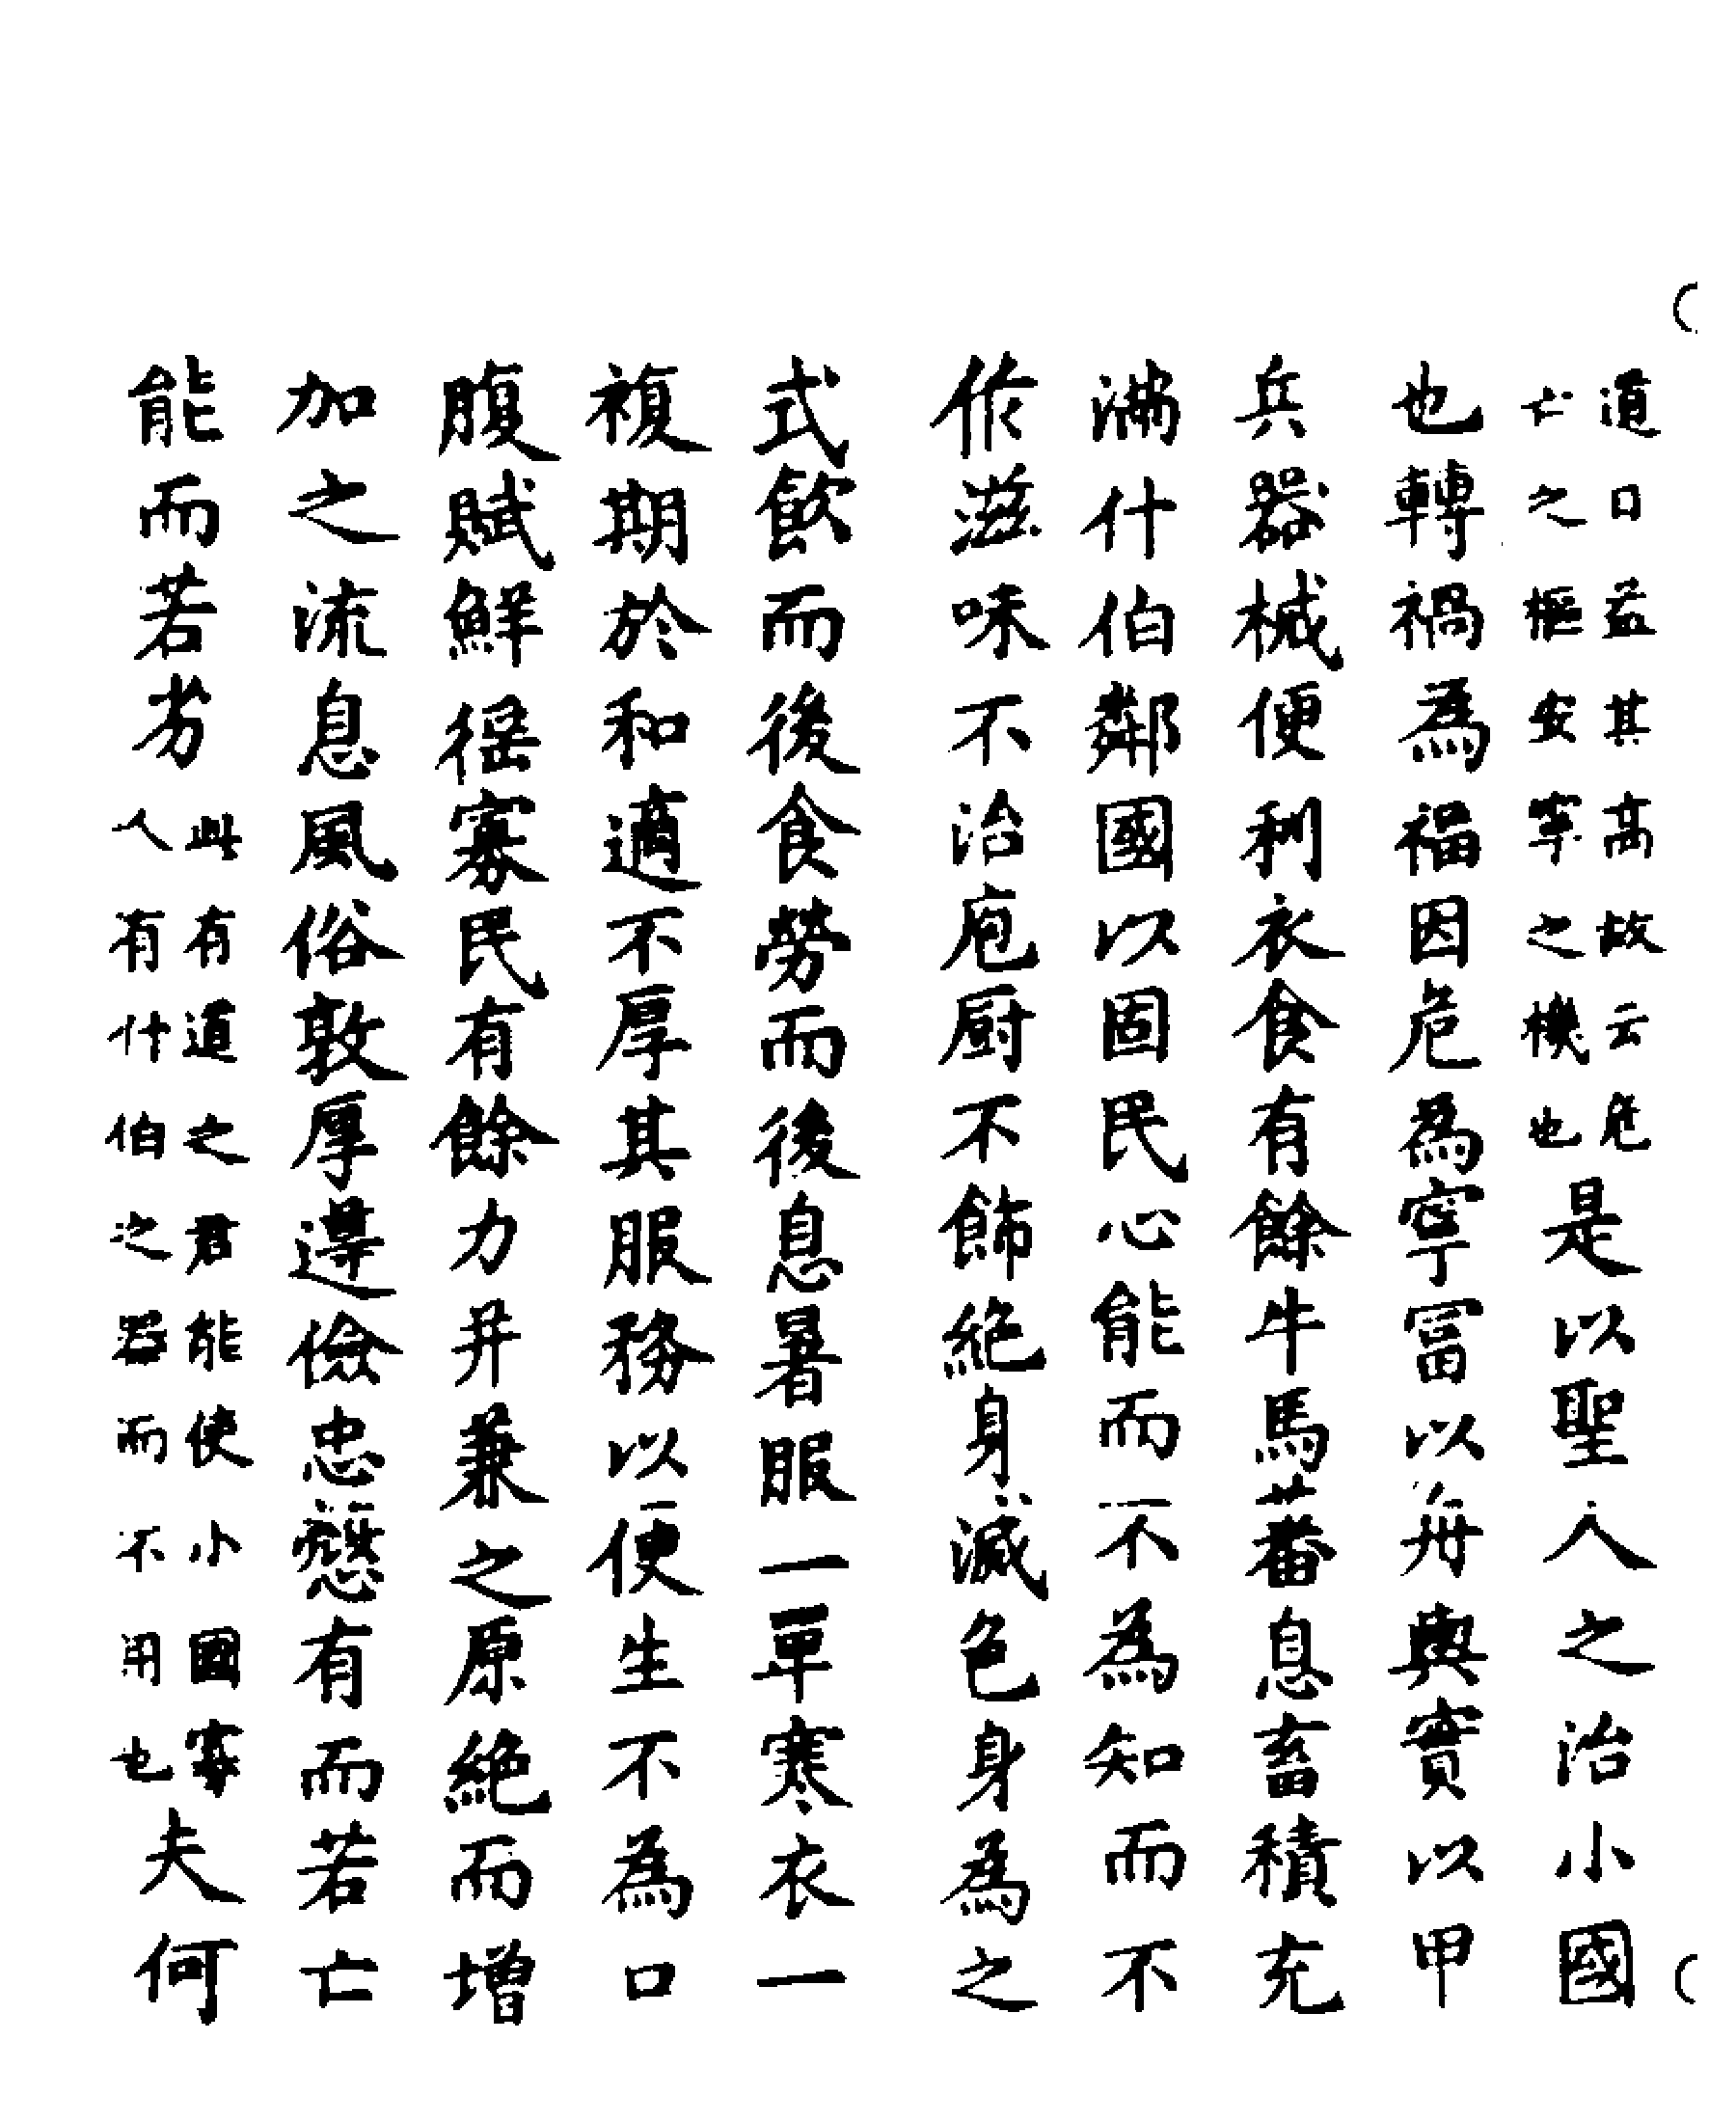 道口益其高故云危
亡之樞安寧之機也
是以聖人之治小國
也轉禍為福因危為寧冨以舟輿實以甲
兵器械便利衣食有餘牛馬蕃息畜積充
滿什伯鄰國以固民心能而不為知而不
作滋味不治庖厨不飾絶身減色身為之
式飲而後食勞而後息暑服一單寒衣一
複期於和適不厚其服務以便生不為口
腹賦鮮徭寡民有餘力并兼之原絶而增
加之流息風俗敦厚遵儉忠慤有而若亡
能而若劣
此有道之君能使小國寡
人有什伯之器而不用也
夫何